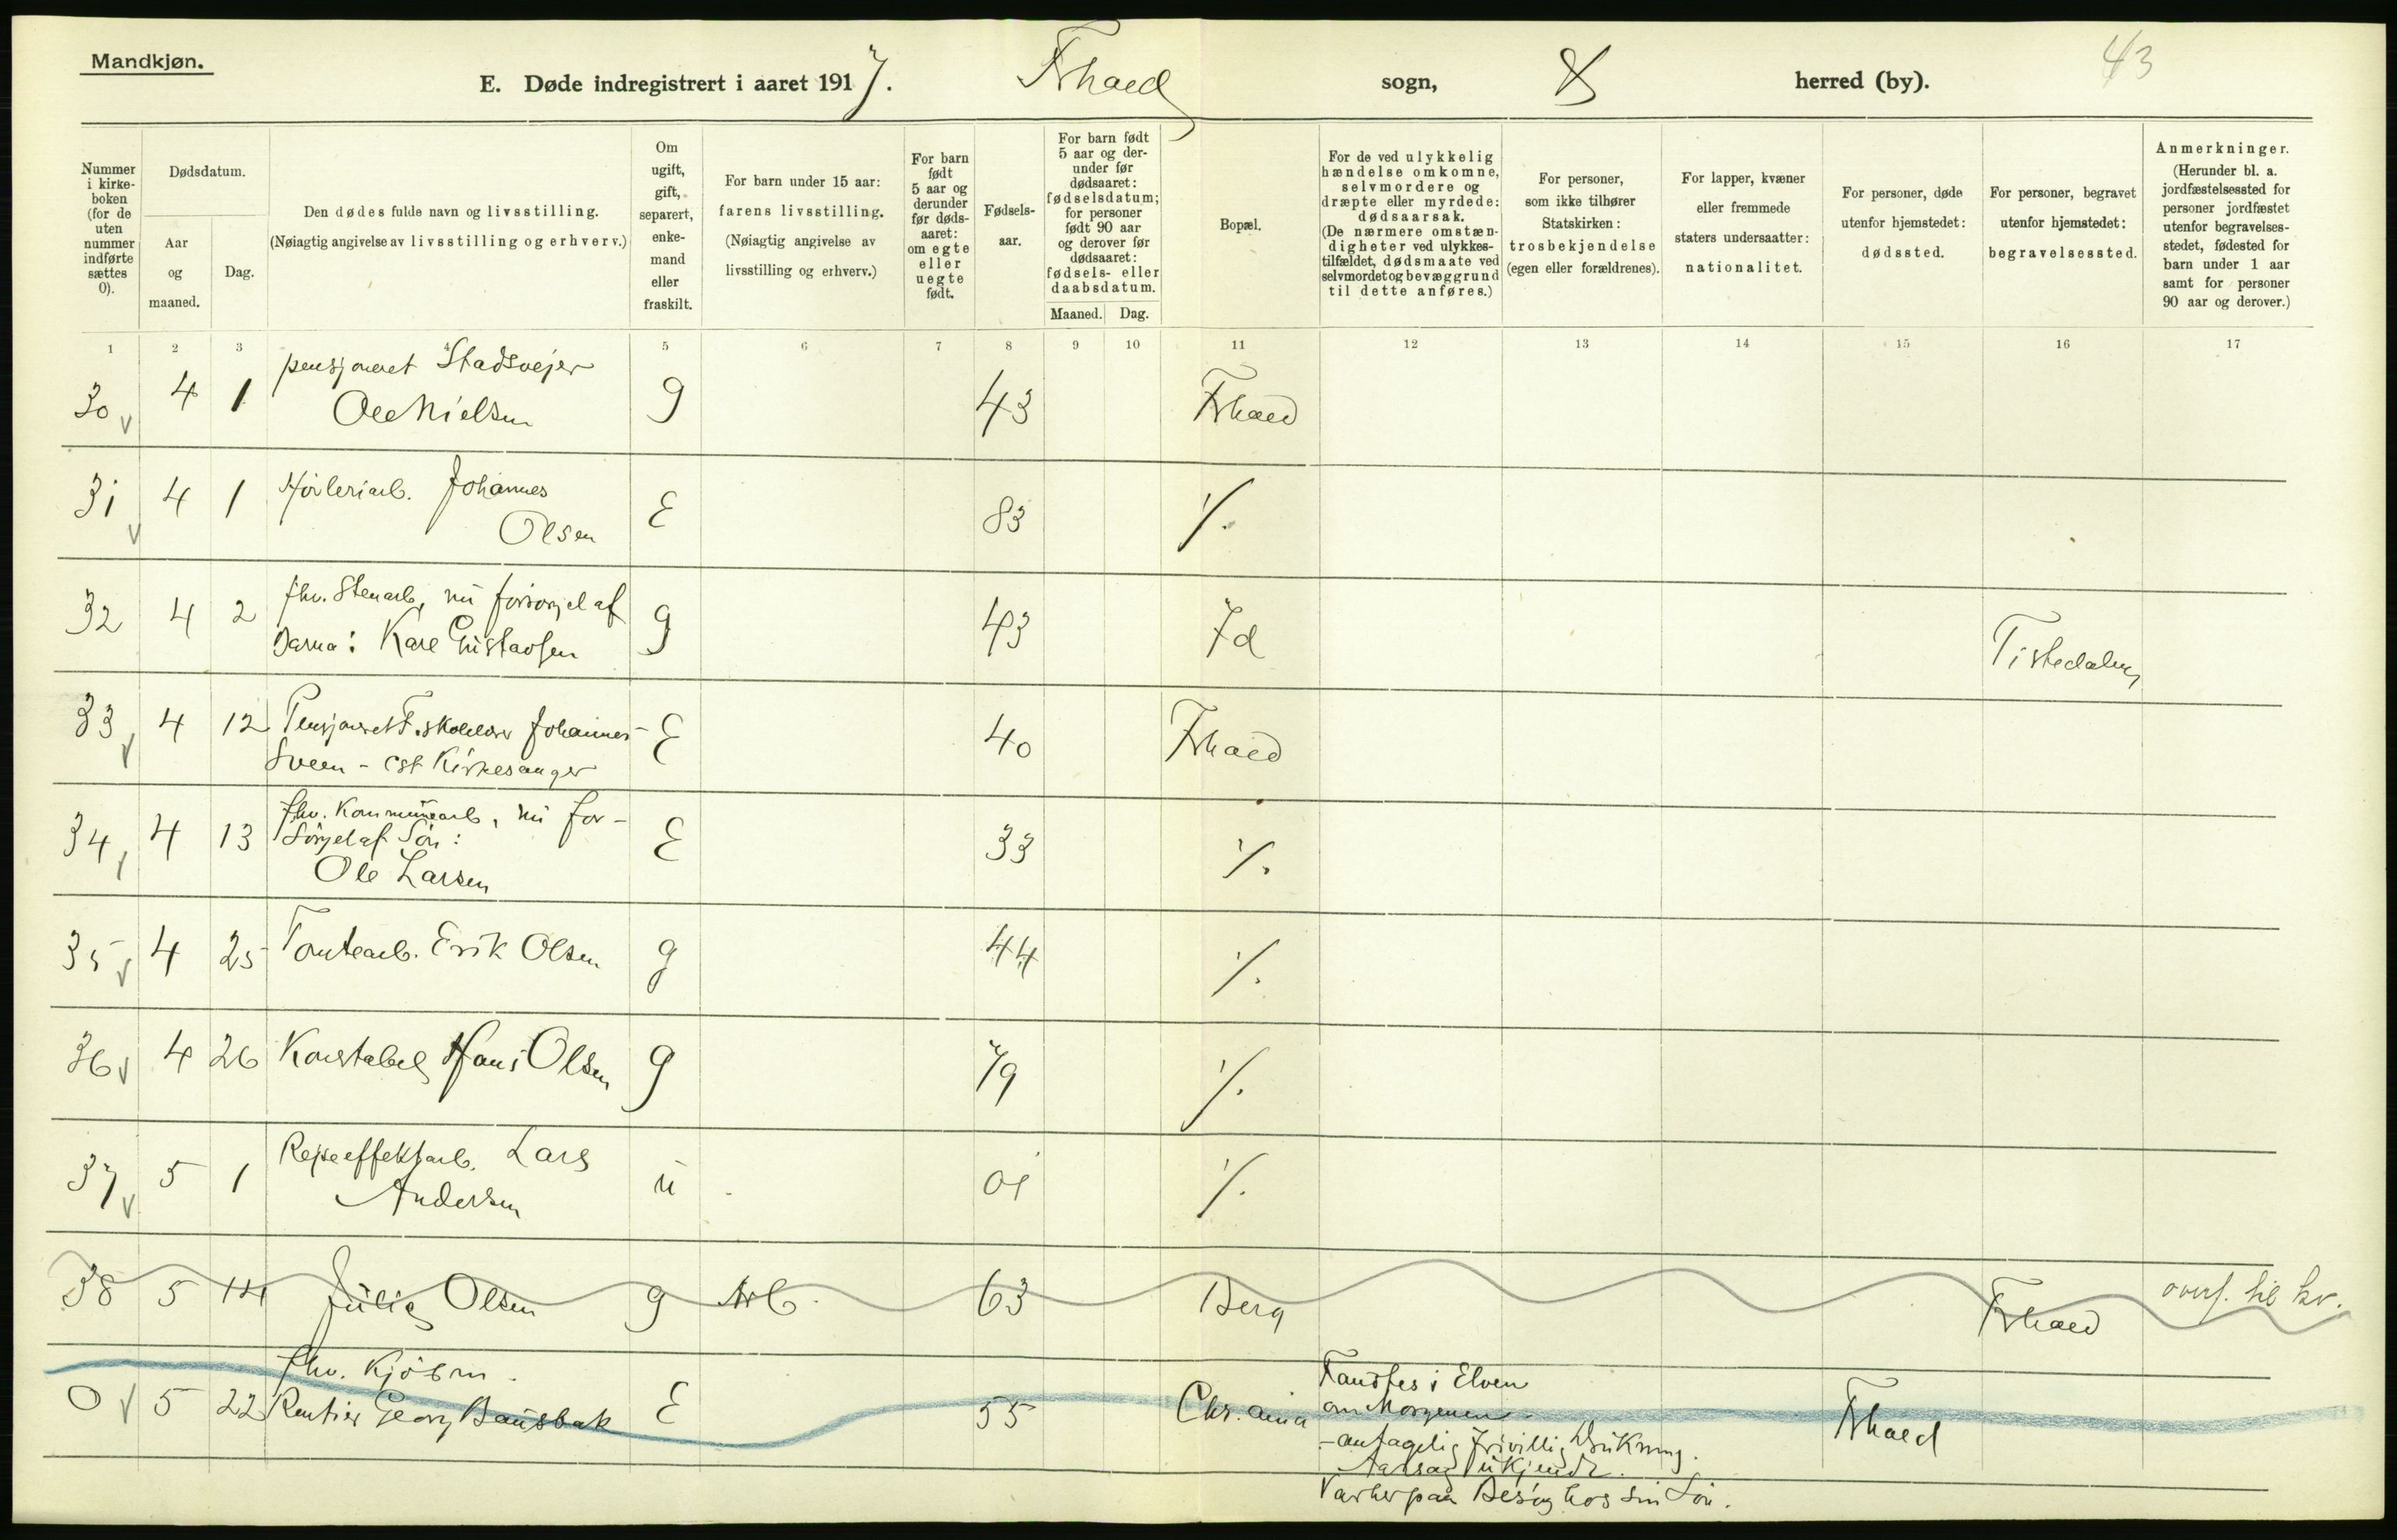 Mandkjøn.
43
E. Døde indregistrert i aaret 1917. Frhald sogn, herred (by).
Nummer i kirke-boken (for de uten nummer indførte sættes 0).
Dødsdatum.
Aar og maaned.
Dag.
Den dødes fulde navn og livsstilling.
(Nøiagtig angivelse av livsstilling og erhverv.)
Om ugift, gift, separert, enke-mand eller fraskilt.
For barn under 15 aar:
farens livsstilling.
(Nøiagtig angivelse av livsstilling og erhverv.)
For barn født 5 aar og derunder før døds-aaret: om egte eller uegte født.
Fødsels-aar.
For barn født 5 aar og der-under før dødsaaret: fødselsdatum; for personer født 90 aar og derover før dødsaaret: fødsels- eller daabsdatum.
Maaned. Dag.
Bopæl.
For de ved ulykkelig hændelse omkomne, selvmordere og dræpte eller myrdede: dødsaarsak.
(De nærmere omstæn-digheter ved ulykkes-tilfældet, dødsmaate ved selvmordet og bevæggrund til dette anføres.)
For personer, som ikke tilhører Statskirken: trosbekjendelse (egen eller forældrenes).
For lapper, kvæner eller fremmede staters undersaatter: nationalitet.
For personer, døde utenfor hjemstedet: dødssted.
For personer, begravet utenfor hjemstedet: begravelsessted.
Anmerkninger.
(Herunder bl. a. jordfæstelsessted for personer jordfæstet utenfor begravelses-stedet, fødested for barn under 1 aar samt for personer 90 aar og derover.)
1 2 3 4 5 6 7 8 9 10 11 12 13 14 15 16 17
pensjoneret Stadsvejer
30 4 1 Ole Nielsen g 43 Frhald
31 4 1 Høvleriarb. Johannes
Olsen E 83 ⁒
32 4 2 fhv. Stenarb, nu forsørget af
Barna: Kare Gustavsen g 43 Id Tistedalen
33 4 12 Pensjoneret F.skolelærer Johannes E 40 Frhald
Sveen - cst Kirkesanger
34 4 13 fhv. Kommunearb, nu for-
sørget af Søn: E 33 ⁒
Ole Larsen
35 4 25 Tomtearb. Erik Olsen g 44 ⁒
36 4 26 Konstabel Hans Olsen g 79 ⁒
37 5 1 Rejseeffektarb. Lars
Andersen u 01 ⁒
38 5 14 Julie Olsen g Arb. 63 Berg Frhald overf. til kv.
fhv. Kjøbm.
0 5 22 Rentier Georg Bausbak E 55 Chr.ania Frhald
Fandtes i Elven
om Morgenen
- antagelig frivillig Drukning.
Aarsag ukjendt.
Var her paa Besøg hos sin Søn.